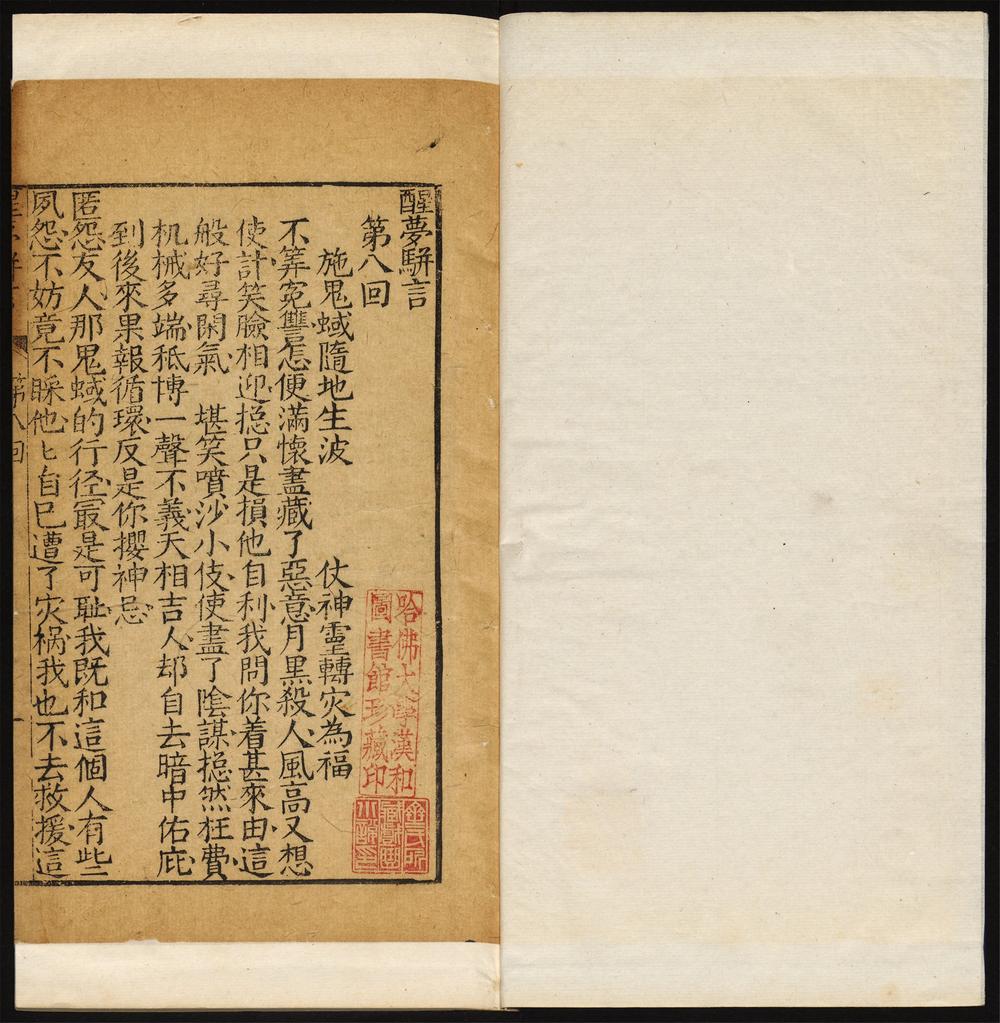 醒夢駢言
第八回
施鬼蜮隨地生波 仗神𤫊轉灾為福
不筭寃讐怎便滿懷盡藏了惡意月黑殺人風高又想
使計笑臉相迎搃只是損他自利我問你着甚來由這
般好尋閑氣 堪笑噴沙小伎使盡了陰謀搃然枉費
机械多端秪博一聲不義天相吉人却自去暗中佑庇
到後來果報循環反是你攖神忌
匿怨友人那鬼蜮的行径最是可耻我既和這個人有些
夙怨不妨竟不睬他匕自巳遭了灾禍我也不去救援這
第八回
一
哈佛大學漢和
圖書館珍藏印